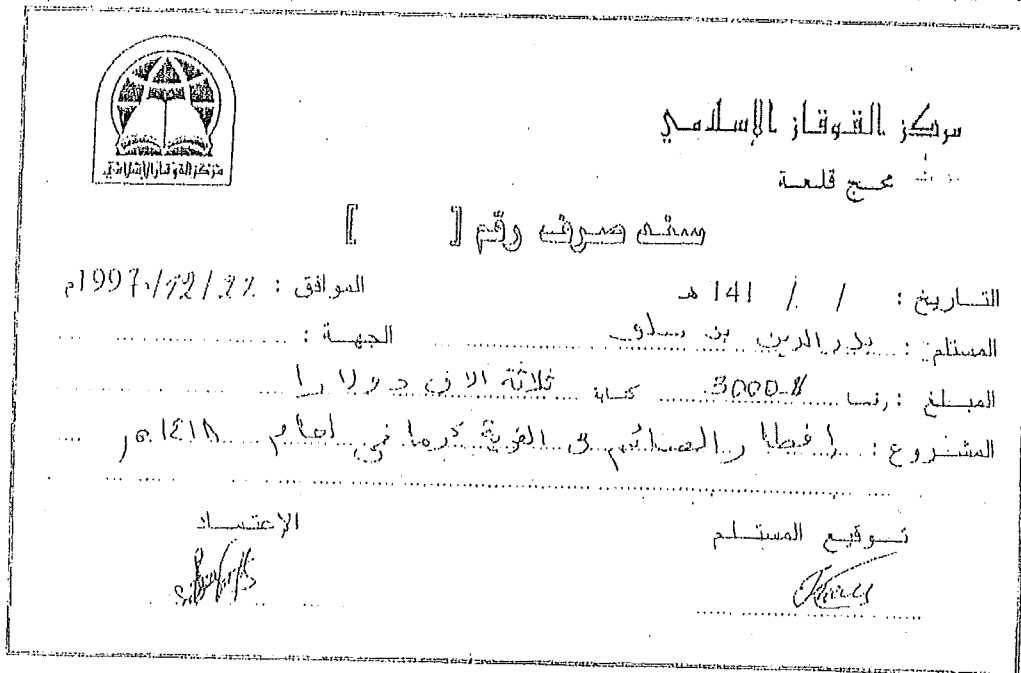 مركز القوقاز الإسلامي
مركز القوقاز الإسلامي
محج قلعة
سند صرف رقم [ ]
التاريخ : / / 141 هـ الموافق : 22/12/1997م
المستلم : بدر الدين بن الجهة :
المبلغ : رقما 3000-$ كتابة ثلاثة الاف دولارا
المشروع : افطار الصائم في القرية في لعام ١٤١٨هـ
توقيع المستلم الإعتماد